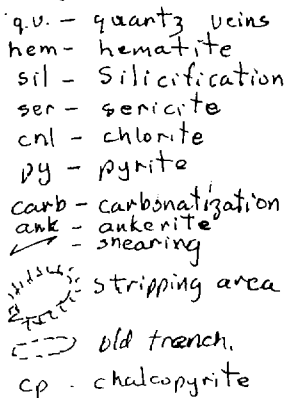 q.v. - quartz veins
hem - hematite
sil - Silicification
ser - sericite
cnl - chlorite
py - pyrite
carb - carbonatization
ank - ankerite
- shearing
- stripping area
old trench.
cp - chalcopyrite